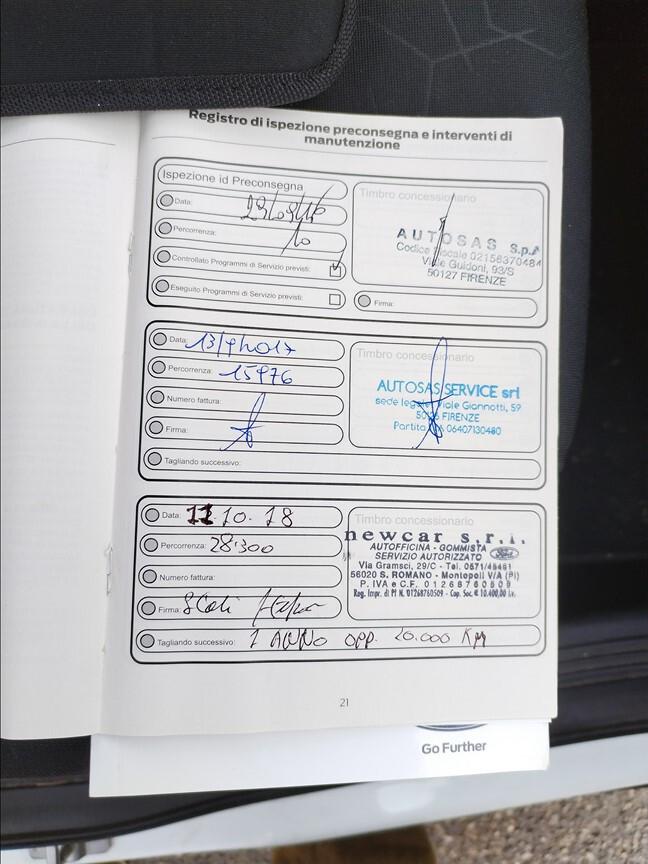 Registro di ispezione preconsegna e interventi di
manutenzione
Ispezione id Preconsegna
Data: 29/09/16
Percorrenza: 10
Controllato Programmi di Servizio previsti:
Eseguito Programmi di Servizio previsti:
Timbro concessionario
AUTOSAS S.p.A
Codice fiscale 02156370484
Viale Guidoni, 93/S
50127 FIRENZE
Firma:
Data: 13/9/2017
Percorrenza: 15976
Numero fattura:
Firma:
Timbro concessionario
AUTOSAS SERVICE srl
sede legale Viale Giannotti, 59
FIRENZE
Partita 06407130480
Tagliando successivo:
Data: 11 10. 18
Percorrenza: 28.300
Numero fattura:
Firma:
Timbro concessionario
newcar s.r.l.
AUTOFFICINA - GOMMISTA
SERVIZIO AUTORIZZATO Ford
Via Gramsci, 29/C - Tel. 0571/45461
56020 S. ROMANO - Montopoli V/A (PI)
P. IVA e C.F. 01268760509
Reg. Impr. di PI N. 01268760509 - Cap. Soc. € 10.400,00 i.v.
Tagliando successivo: 1 ANNO OPP. 20.000 KM
21
Go Further